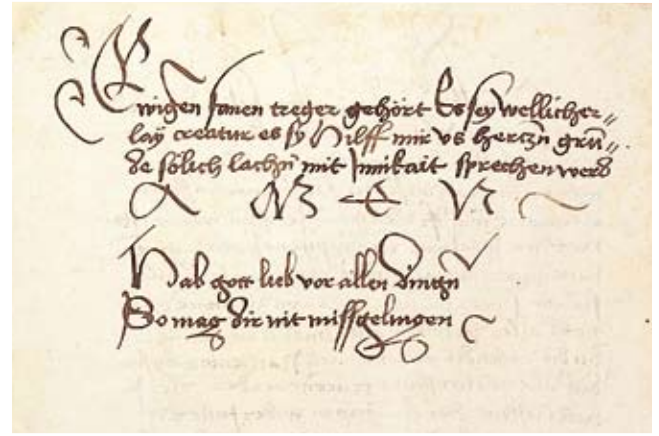 Ewigen samen treger gehört Es sey wellicher„
lay creatur es sy Hilff mir vs hertzn grū„
de sölich lachn mit Innikait sprechen werd
A M E N
Hab gott lieb vor allen Dingn
So mag dir nit missgelingen